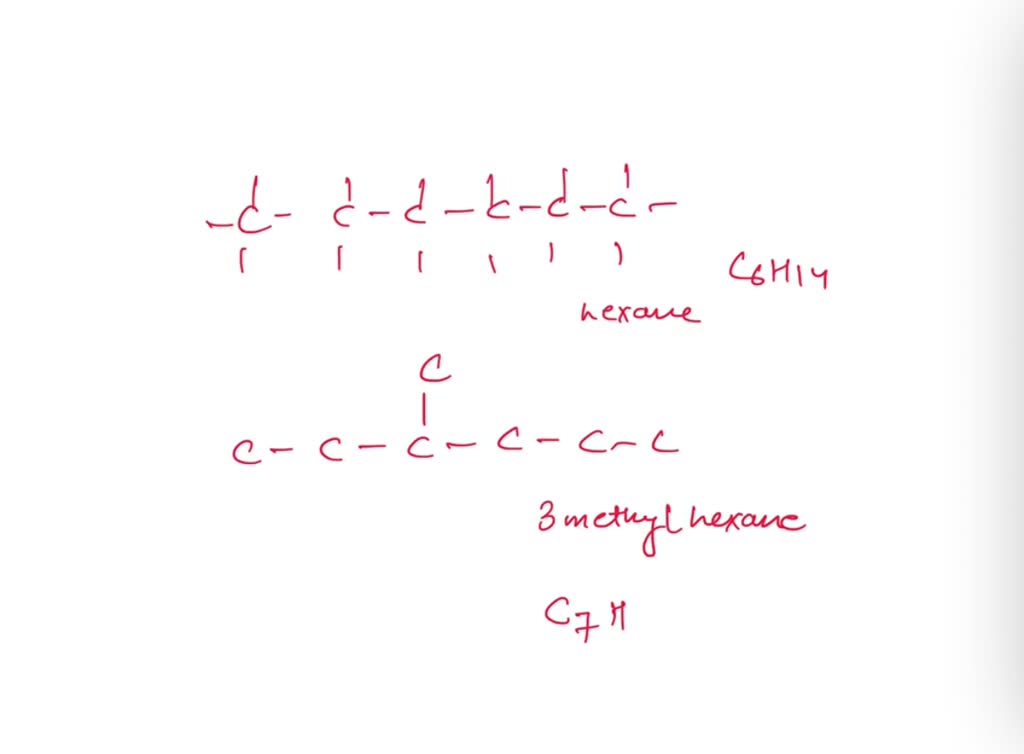 -C- C-C-C-C-C-
C6H14
hexane
C
C-C-C-C-C-C
3methylhexane
C7H